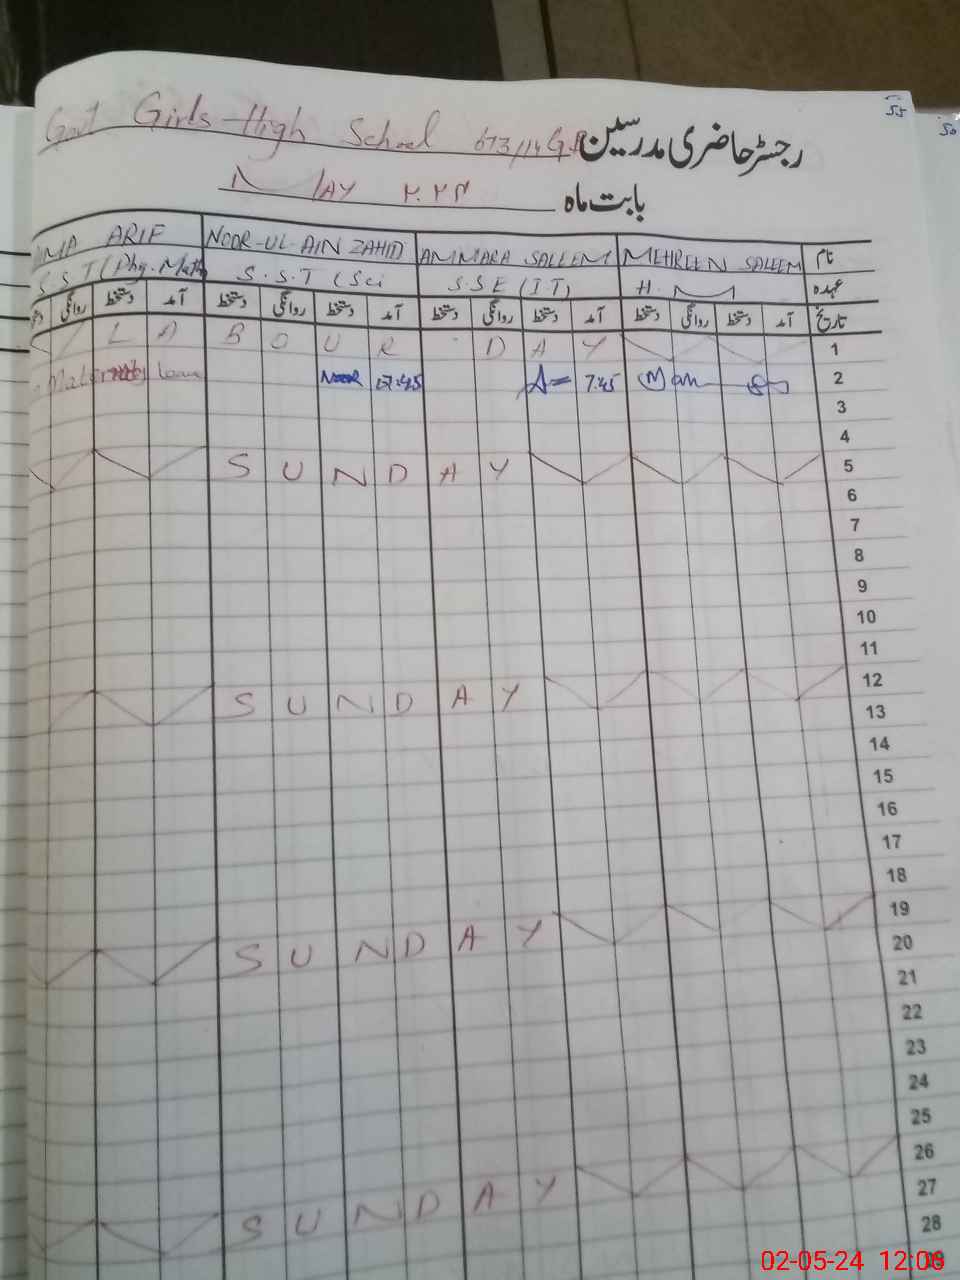 55
50
Govt Girls High School 673/14 G.B رجسٹر حاضری مدرسین
MAY ۲۰۲۴ بابت ماہ
ARIF NOOR-UL-AIN ZAHID AMMARA SALEEM MEHREEN SALEEM نام
S.S.T (Phy.Math S.S.T (Sci S.S.E (I.T) H.M عہدہ
روانگی دستخط آمد دستخط روانگی دستخط آمد دستخط روانگی دستخط آمد دستخط روانگی دستخط آمد تاریخ
L A B O U R D A Y 1
Noor 07:45 7:45 2
3
4
S U N D A Y 5
6
7
8
9
10
11
S U N D A Y 12
13
14
15
16
17
18
S U N D A Y 19
20
21
22
23
24
25
S U N D A Y 26
27
28
29
02-05-24 12:06